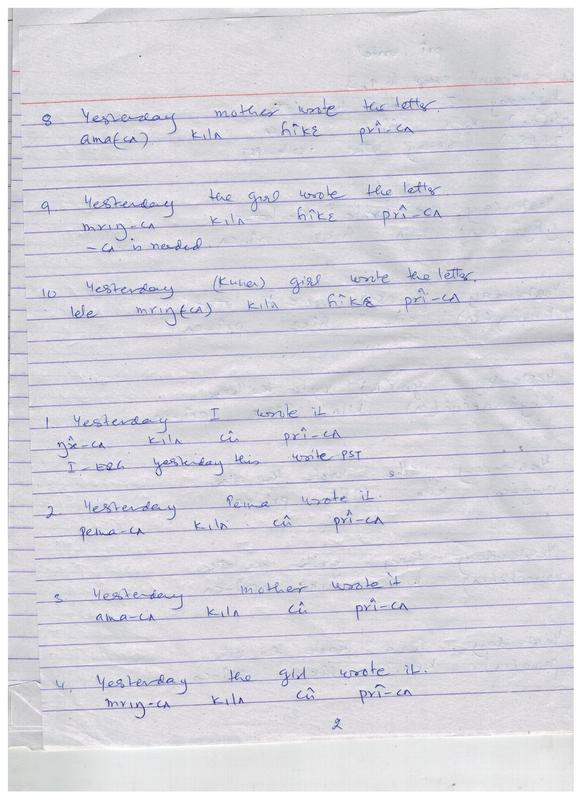 8 Yesterday mother wrote the letter.
ama(cʌ) kilʌ ɦîkɛ prî-cʌ
9. Yesterday the girl wrote the letter.
mrɪŋ-cʌ kɪlʌ ɦîkɛ prî-cʌ
-cʌ is needed
10 Yesterday girl wrote the letter.
lele mrɪŋ(cʌ) kɪlʌ ɦîkɛ prî-cʌ
1. Yesterday I wrote it
kɪlʌ cû prî-cʌ
I-ERG yesterday this write PST
2. Yesterday Pema wrote it.
pema-cʌ kɪlʌ cû prî-cʌ
3 Yesterday mother wrote it.
ama-cʌ kɪlʌ cû prî-cʌ
4. Yesterday the girl wrote it.
mrɪŋ-cʌ kɪlʌ cû prî-cʌ
2